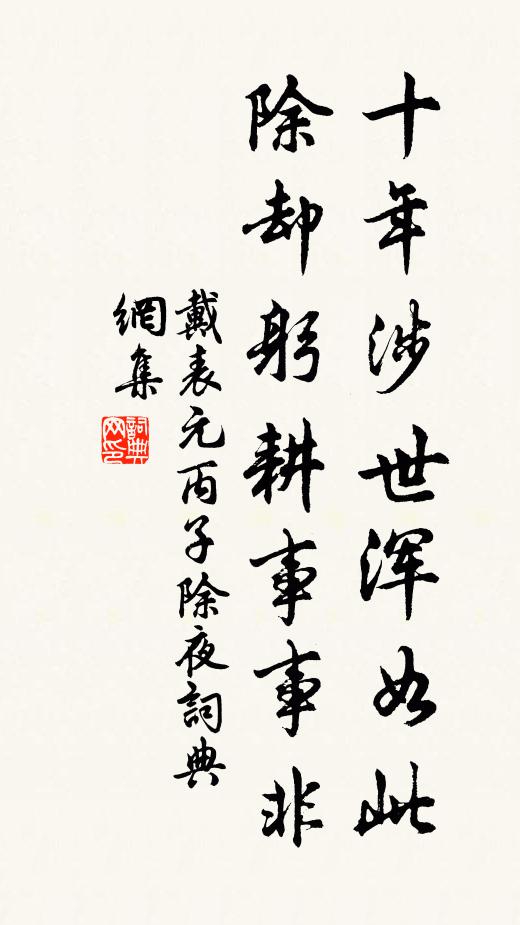 十年涉世浑如此
除却躬耕事事非
戴表元丙子除夜詞典
網集
詞典网印